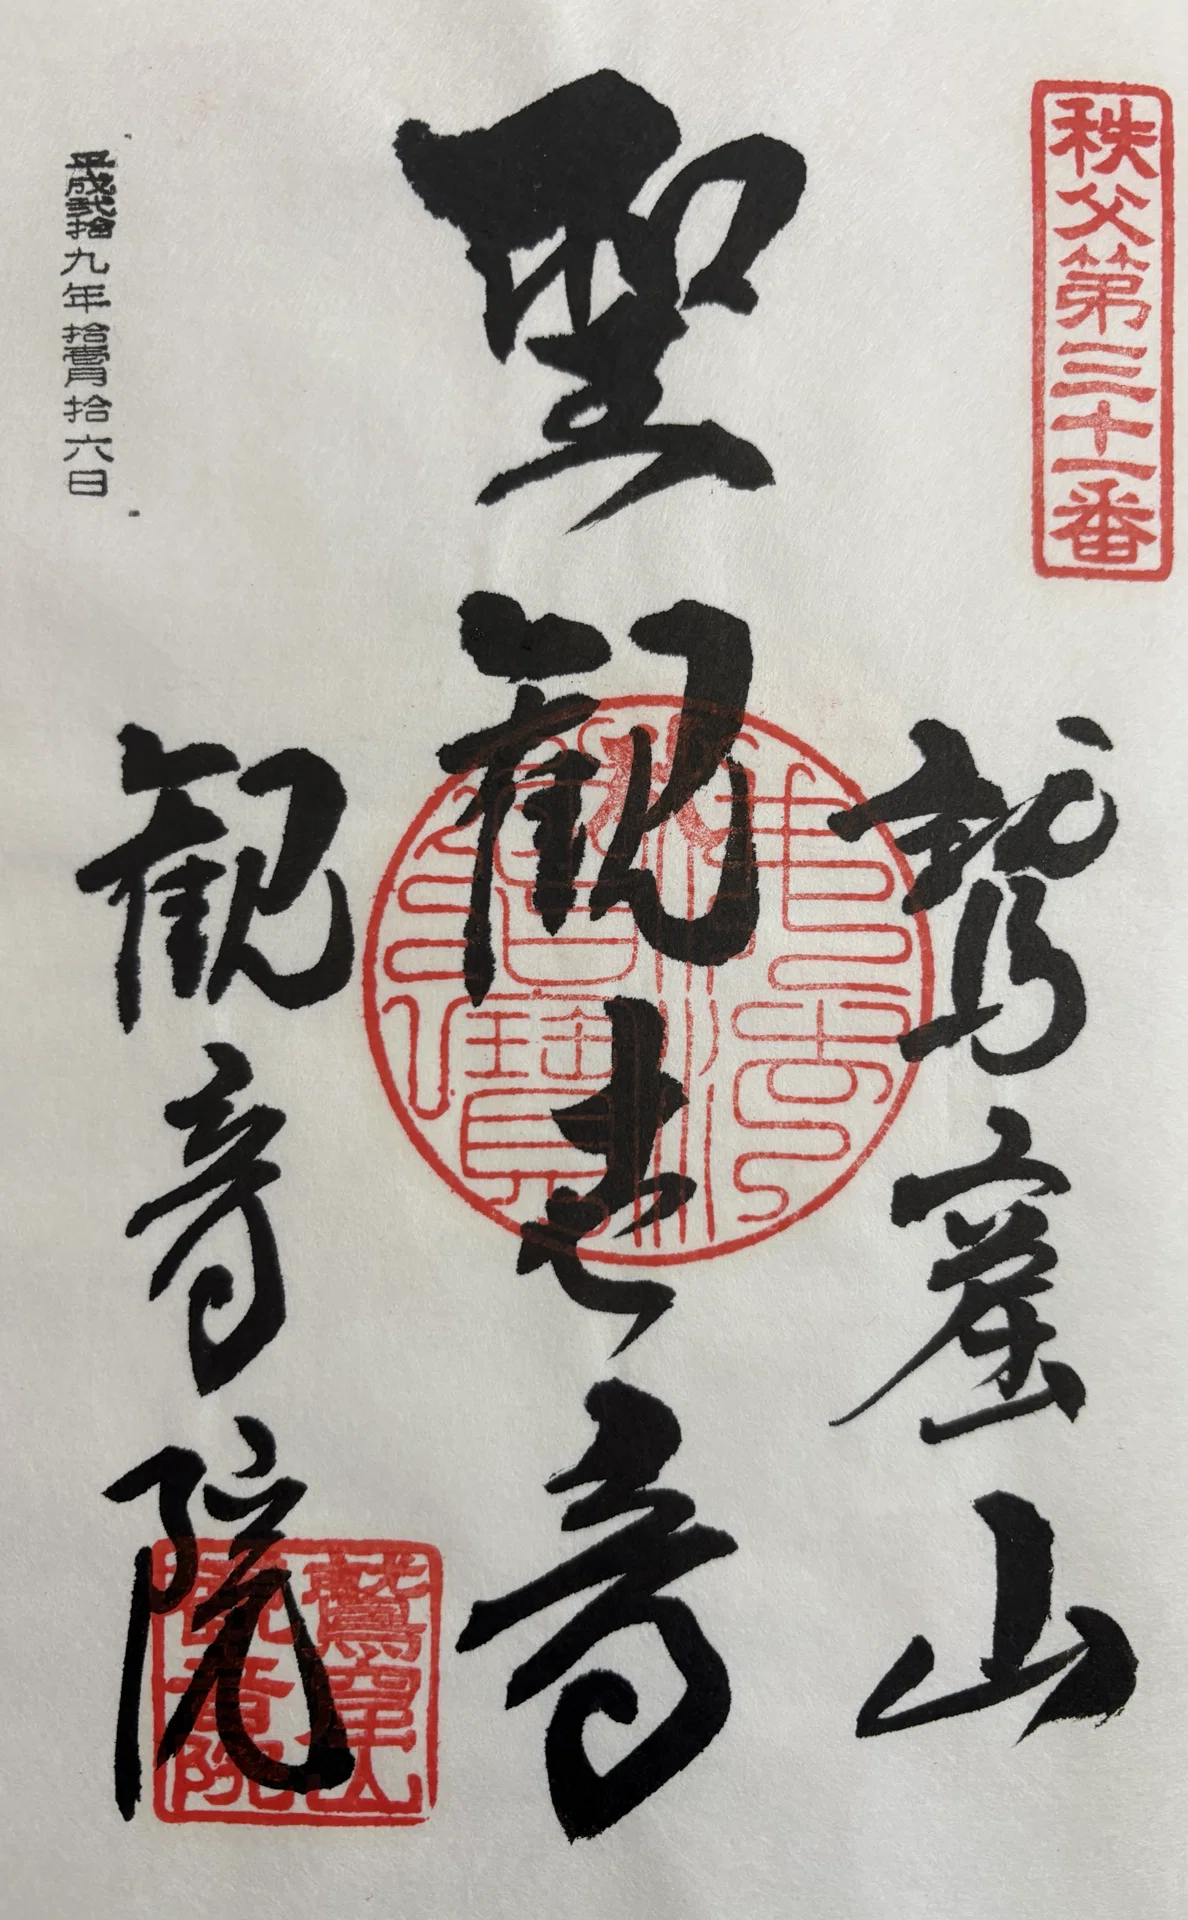 秩父第三十一番
鷲窟山
聖観世音
佛法
僧寶
観音院
鷲窟山
観音院
平成弐拾九年拾壹月拾六日